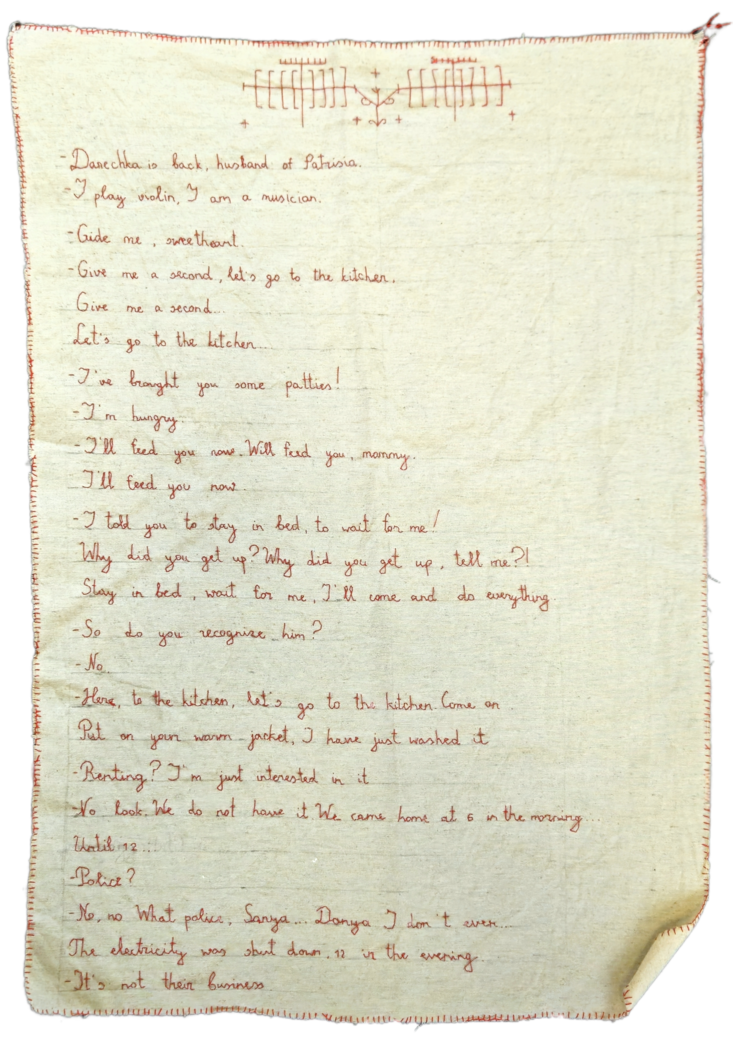 -Danechka is back, husband of Patrisia.
-I play violin, I am a musician.
-Gide me, sweetheart.
-Give me a second, let's go to the kitchen.
Give me a second...
Let's go to the kitchen...
-I've brought you some patties!
-I'm hungry.
-I'll feed you now. Will feed you, mommy.
I'll feed you now...
-I told you to stay in bed, to wait for me!
Why did you get up? Why did you get up, tell me?!
Stay in bed, wait for me, I'll come and do everything.
-So do you recognize him?
-No.
-Here, to the kitchen, let's go to the kitchen. Come on
Put on your warm jacket, I have just washed it
-Renting? I'm just interested in it
-No look. We do not have it We came home at 6 in the morning...
Until 12...
-Police?
-No, no What police, Sanya... Danya I don't even...
The electricity was shut down. 12 in the evening.
-It's not their business